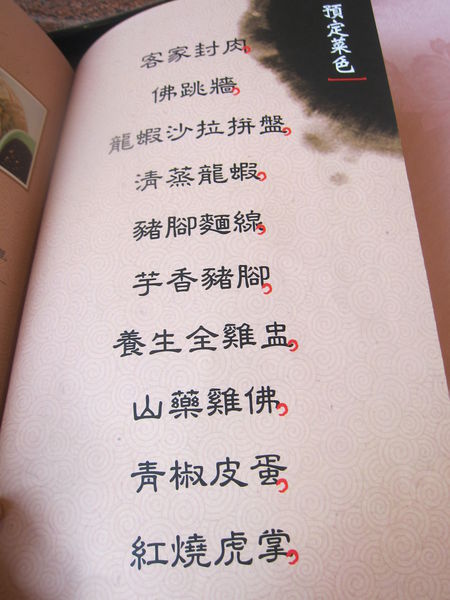 預定菜色
客家封肉
佛跳牆
龍蝦沙拉拼盤
清蒸龍蝦
豬腳麵線
芋香豬腳
養生全雞盅
山藥雞佛
青椒皮蛋
紅燒虎掌